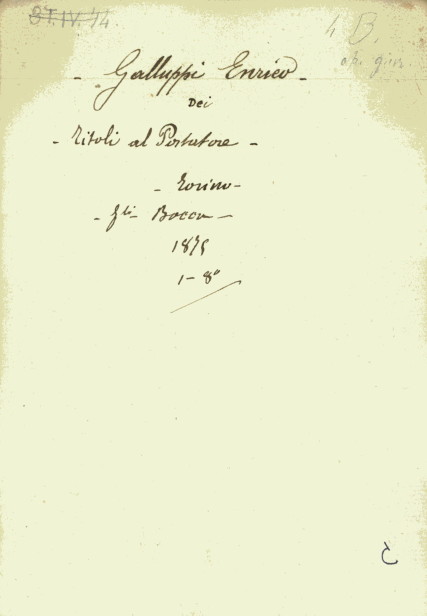 37.IV.44.
4 B.
op. giur.
- Galluppi Enrico -
Dei
- Titoli al Portatore -
- Torino -
- Flli Bocca -
1875
1 - 8°